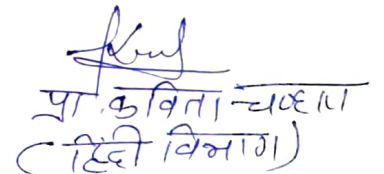 प्रा. कविता चव्हाण
(हिंदी विभाग)